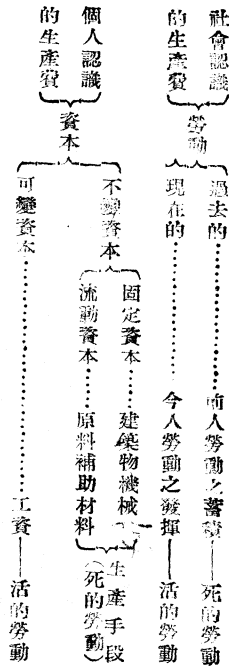 社會認識
的生產費
勞動
過去的……前人勞動之蓄積——死的勞動
現在的……今人勞動之發揮——活的勞動
個人認識
的生產費
資本
不變資本
固定資本……建築物機械
流動資本……原料補助材料
生產手段
(死的勞動)
可變資本……工資——活的勞動